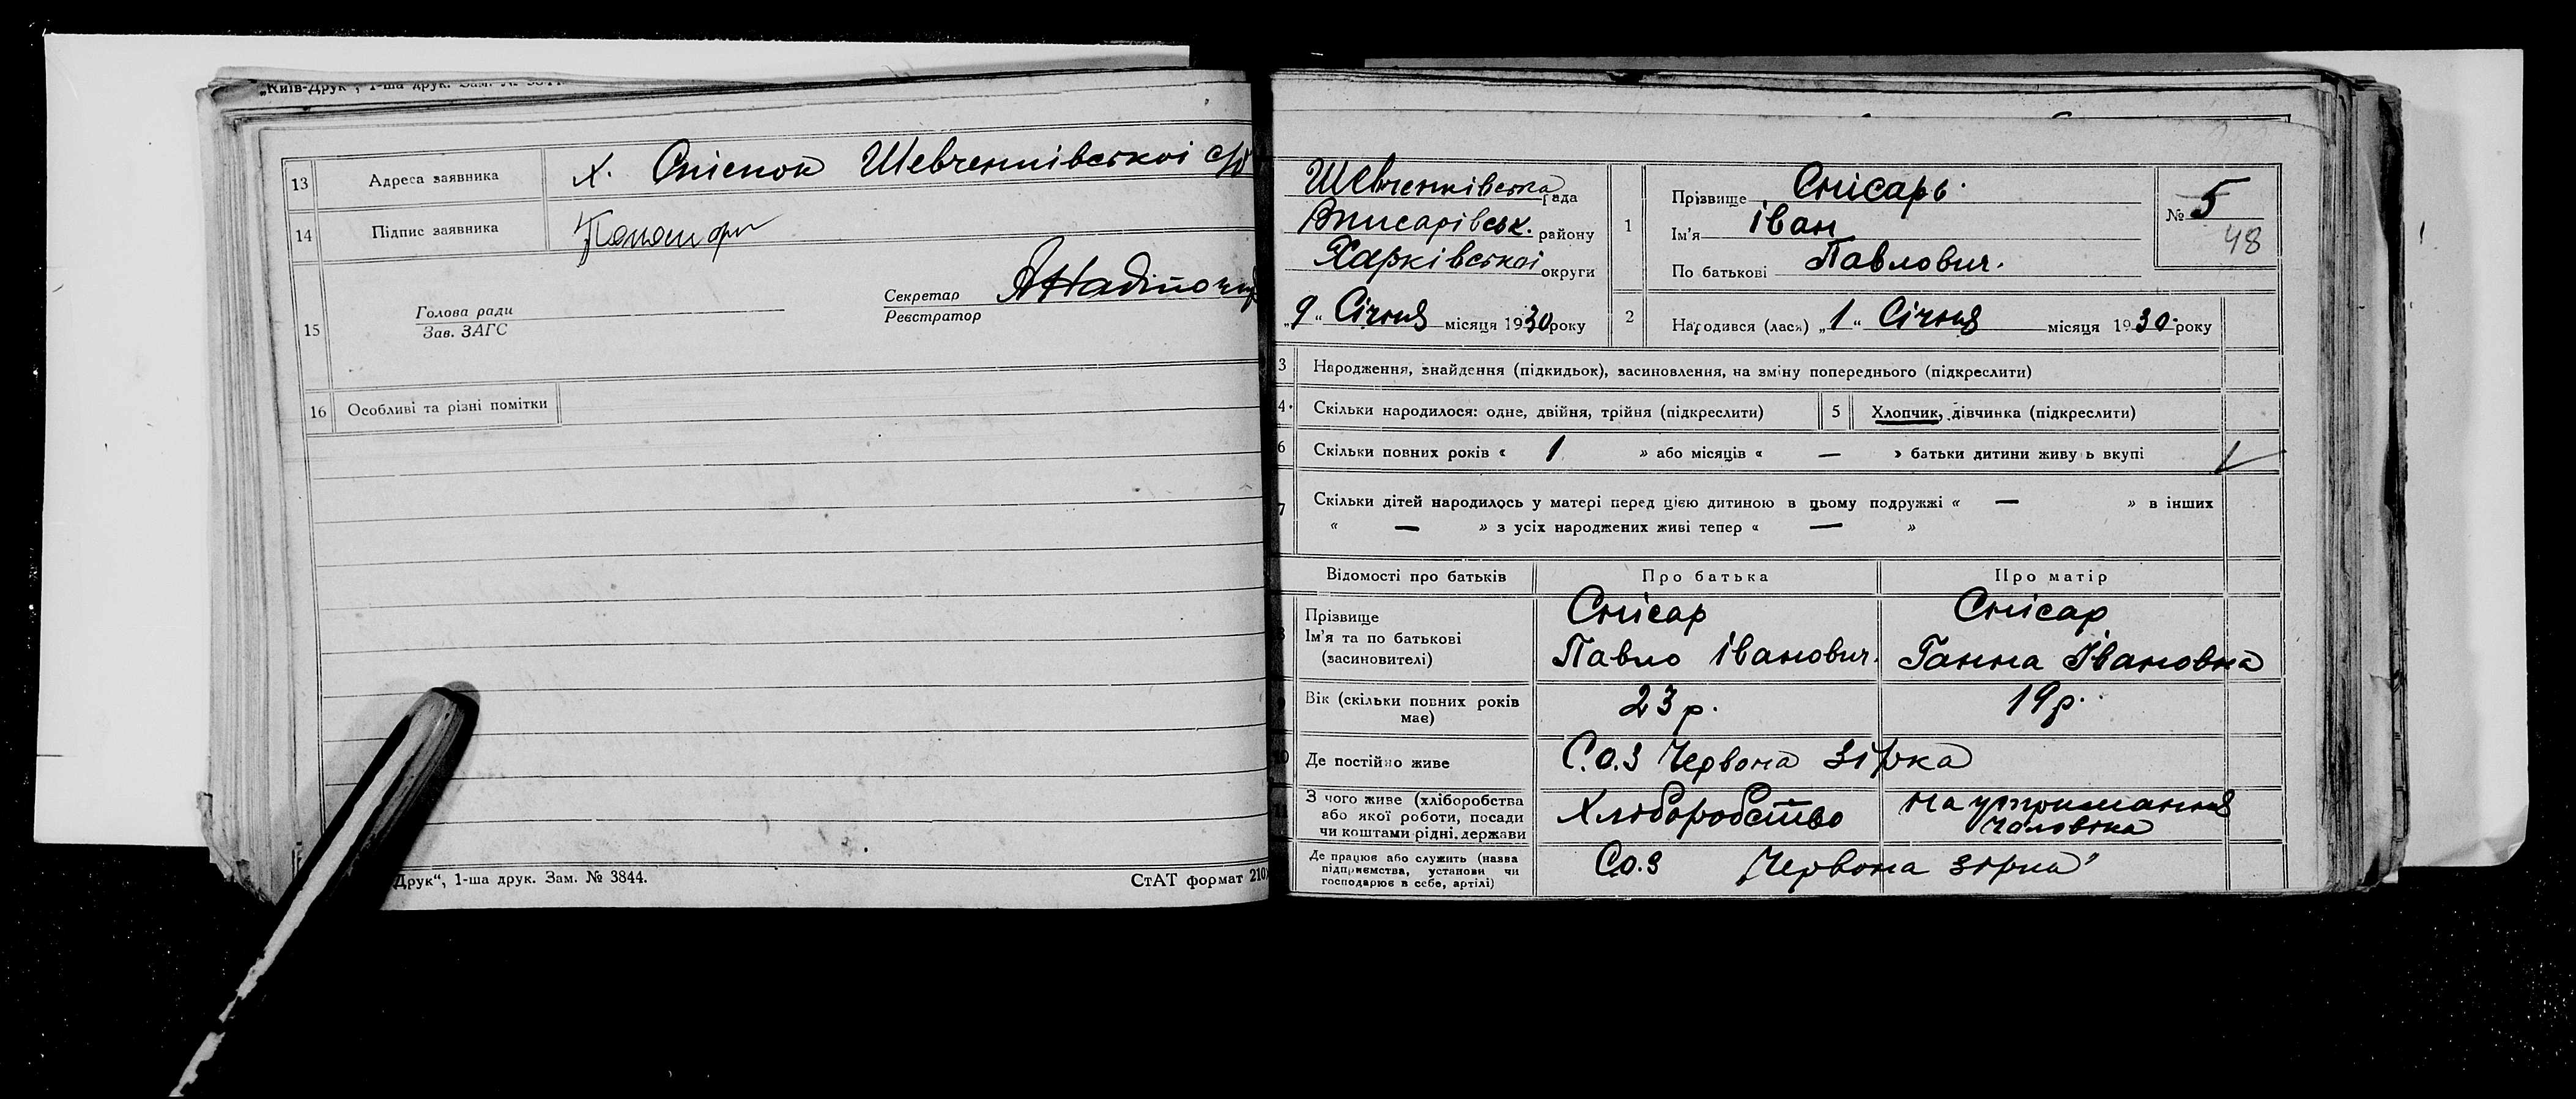 „Київ-Друк“, 1-ша друк. Зам. №
13 Адреса заявника х. Спісток Шевченківської с/р
14 Підпис заявника
15 Голова ради
Зав. ЗАГС
Секретар
Реєстратор
16 Особливі та різні помітки
Друк“, 1-ша друк. Зам. № 3844.
СтАТ формат 210
Шевченківська рада
району
Харківської округи
„9“ Січня місяця 1930 року
1 Прізвище Слісарь.
Ім'я Іван
По батькові Павлович.
№ 5
48
2 Народився (лася) „1“ Січня місяця 1930 року
3 Народження, знайдення (підкидьок), засиновлення, на зміну попереднього (підкреслити)
4. Скільки народилося: одне, двійня, трійня (підкреслити)
5 Хлопчик, дівчинка (підкреслити)
6 Скільки повних років « 1 » або місяців « — » батьки дитини живуть вкупі
7 Скільки дітей народилось у матері перед цією дитиною в цьому подружжі « — » в інших
« — » з усіх народжених живі тепер « — »
Відомості про батьків Про батька Про матір
Прізвище Слісар Слісар
Ім'я та по батькові Павло Іванович. Ганна Івановна
(засновителі)
Вік (скільки повних років має) 23 р. 19 р.
Де постійно живе С.О.З Червона зірка
З чого живе (хліборобства
або якої роботи, посади
чи коштами рідні, держави
Хліборобство
на утримання
чоловіка
Де працює або служить (назва
підприємства, установи чи
господарює в себе, артілі)
СО.З Червона зірка"